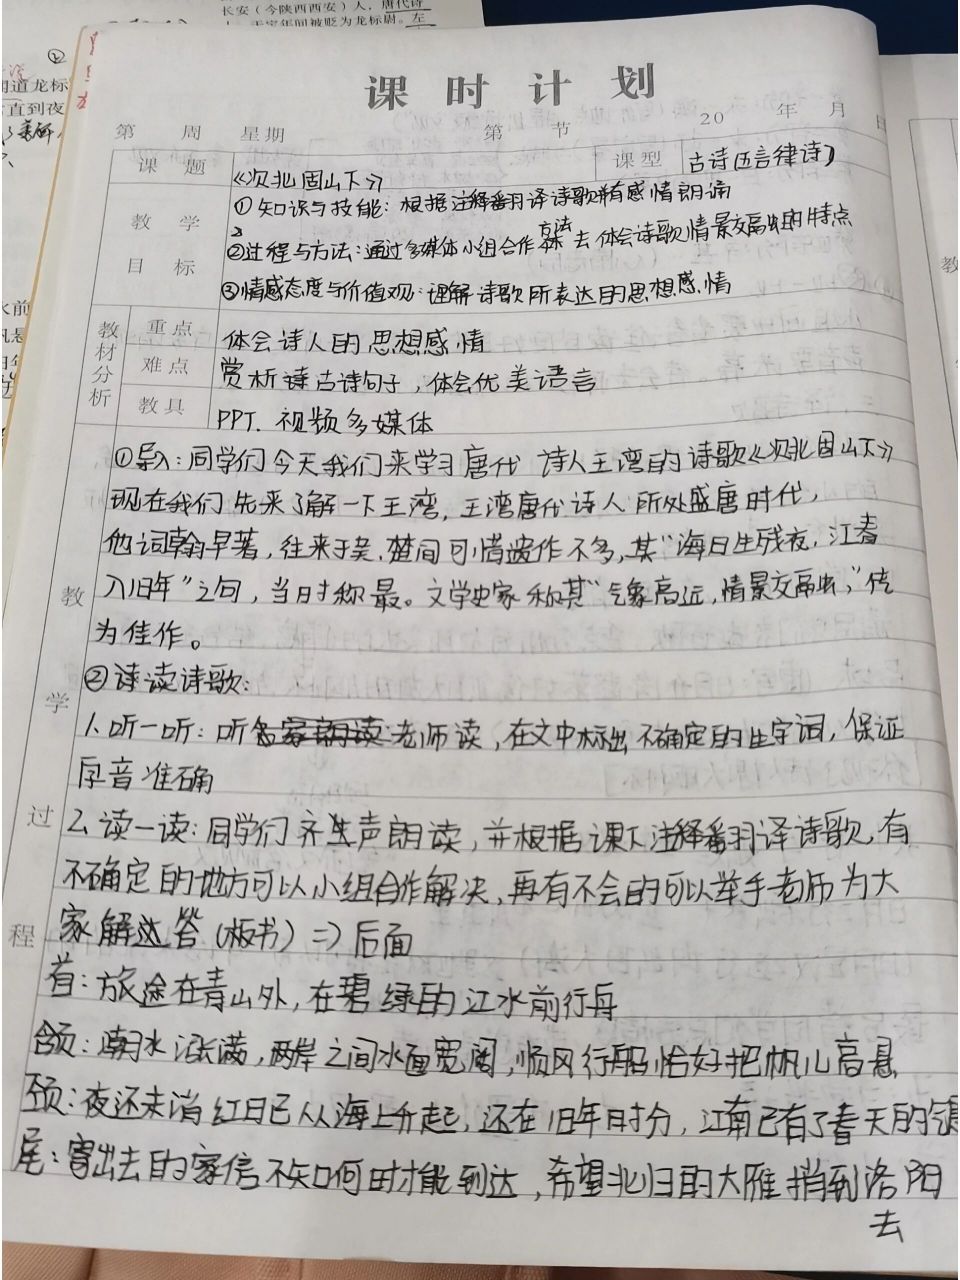 长安（今陕西西安）人，唐代诗
王昌龄间被贬为龙标尉。左
道龙标
直到夜
课时计划
第 周 星期 第 节 20 年 月 日
课题 《次北固山下》 课型 古诗(五言律诗)
教学目标 ①知识与技能：根据注释翻译诗歌并有感情朗诵
②过程与方法：通过多媒体小组合作方法去体会诗歌情景交融的特点
③情感态度与价值观：理解诗歌所表达的思想感情
教材分析 重点 体会诗人的思想感情
难点 赏析诗古诗句子，体会优美语言
教具 PPT. 视频多媒体
教学过程
①导入：同学们今天我们来学习唐代诗人王湾的诗歌《次北固山下》
现在我们先来了解一下王湾，王湾唐代诗人所处盛唐时代，
他词翰早著，往来于吴，楚间可惜遗作不多，其“海日生残夜，江春
入旧年”之句，当时称最。文学史家称其“气象高远，情景交融，”传
为佳作。
②诵读诗歌：
1、听一听：听名家朗读老师读，在文中标出不确定的生字词，保证
字音准确
2、读一读：同学们齐声朗读，并根据课下注释翻译诗歌，有
不确定的地方可以小组合作解决，再有不会的可以举手老师为大
家解答（板书）⇒后面
首：旅途在青山外，在碧绿的江水前行舟
颔：潮水涨满，两岸之间水面宽阔，顺风行船恰好把帆儿高悬
颈：夜还未消红日已从海上升起，还在旧年时分，江南已有了春天的气息
尾：寄出去的家信不知何时才能到达，希望北归的大雁捎到洛阳
去